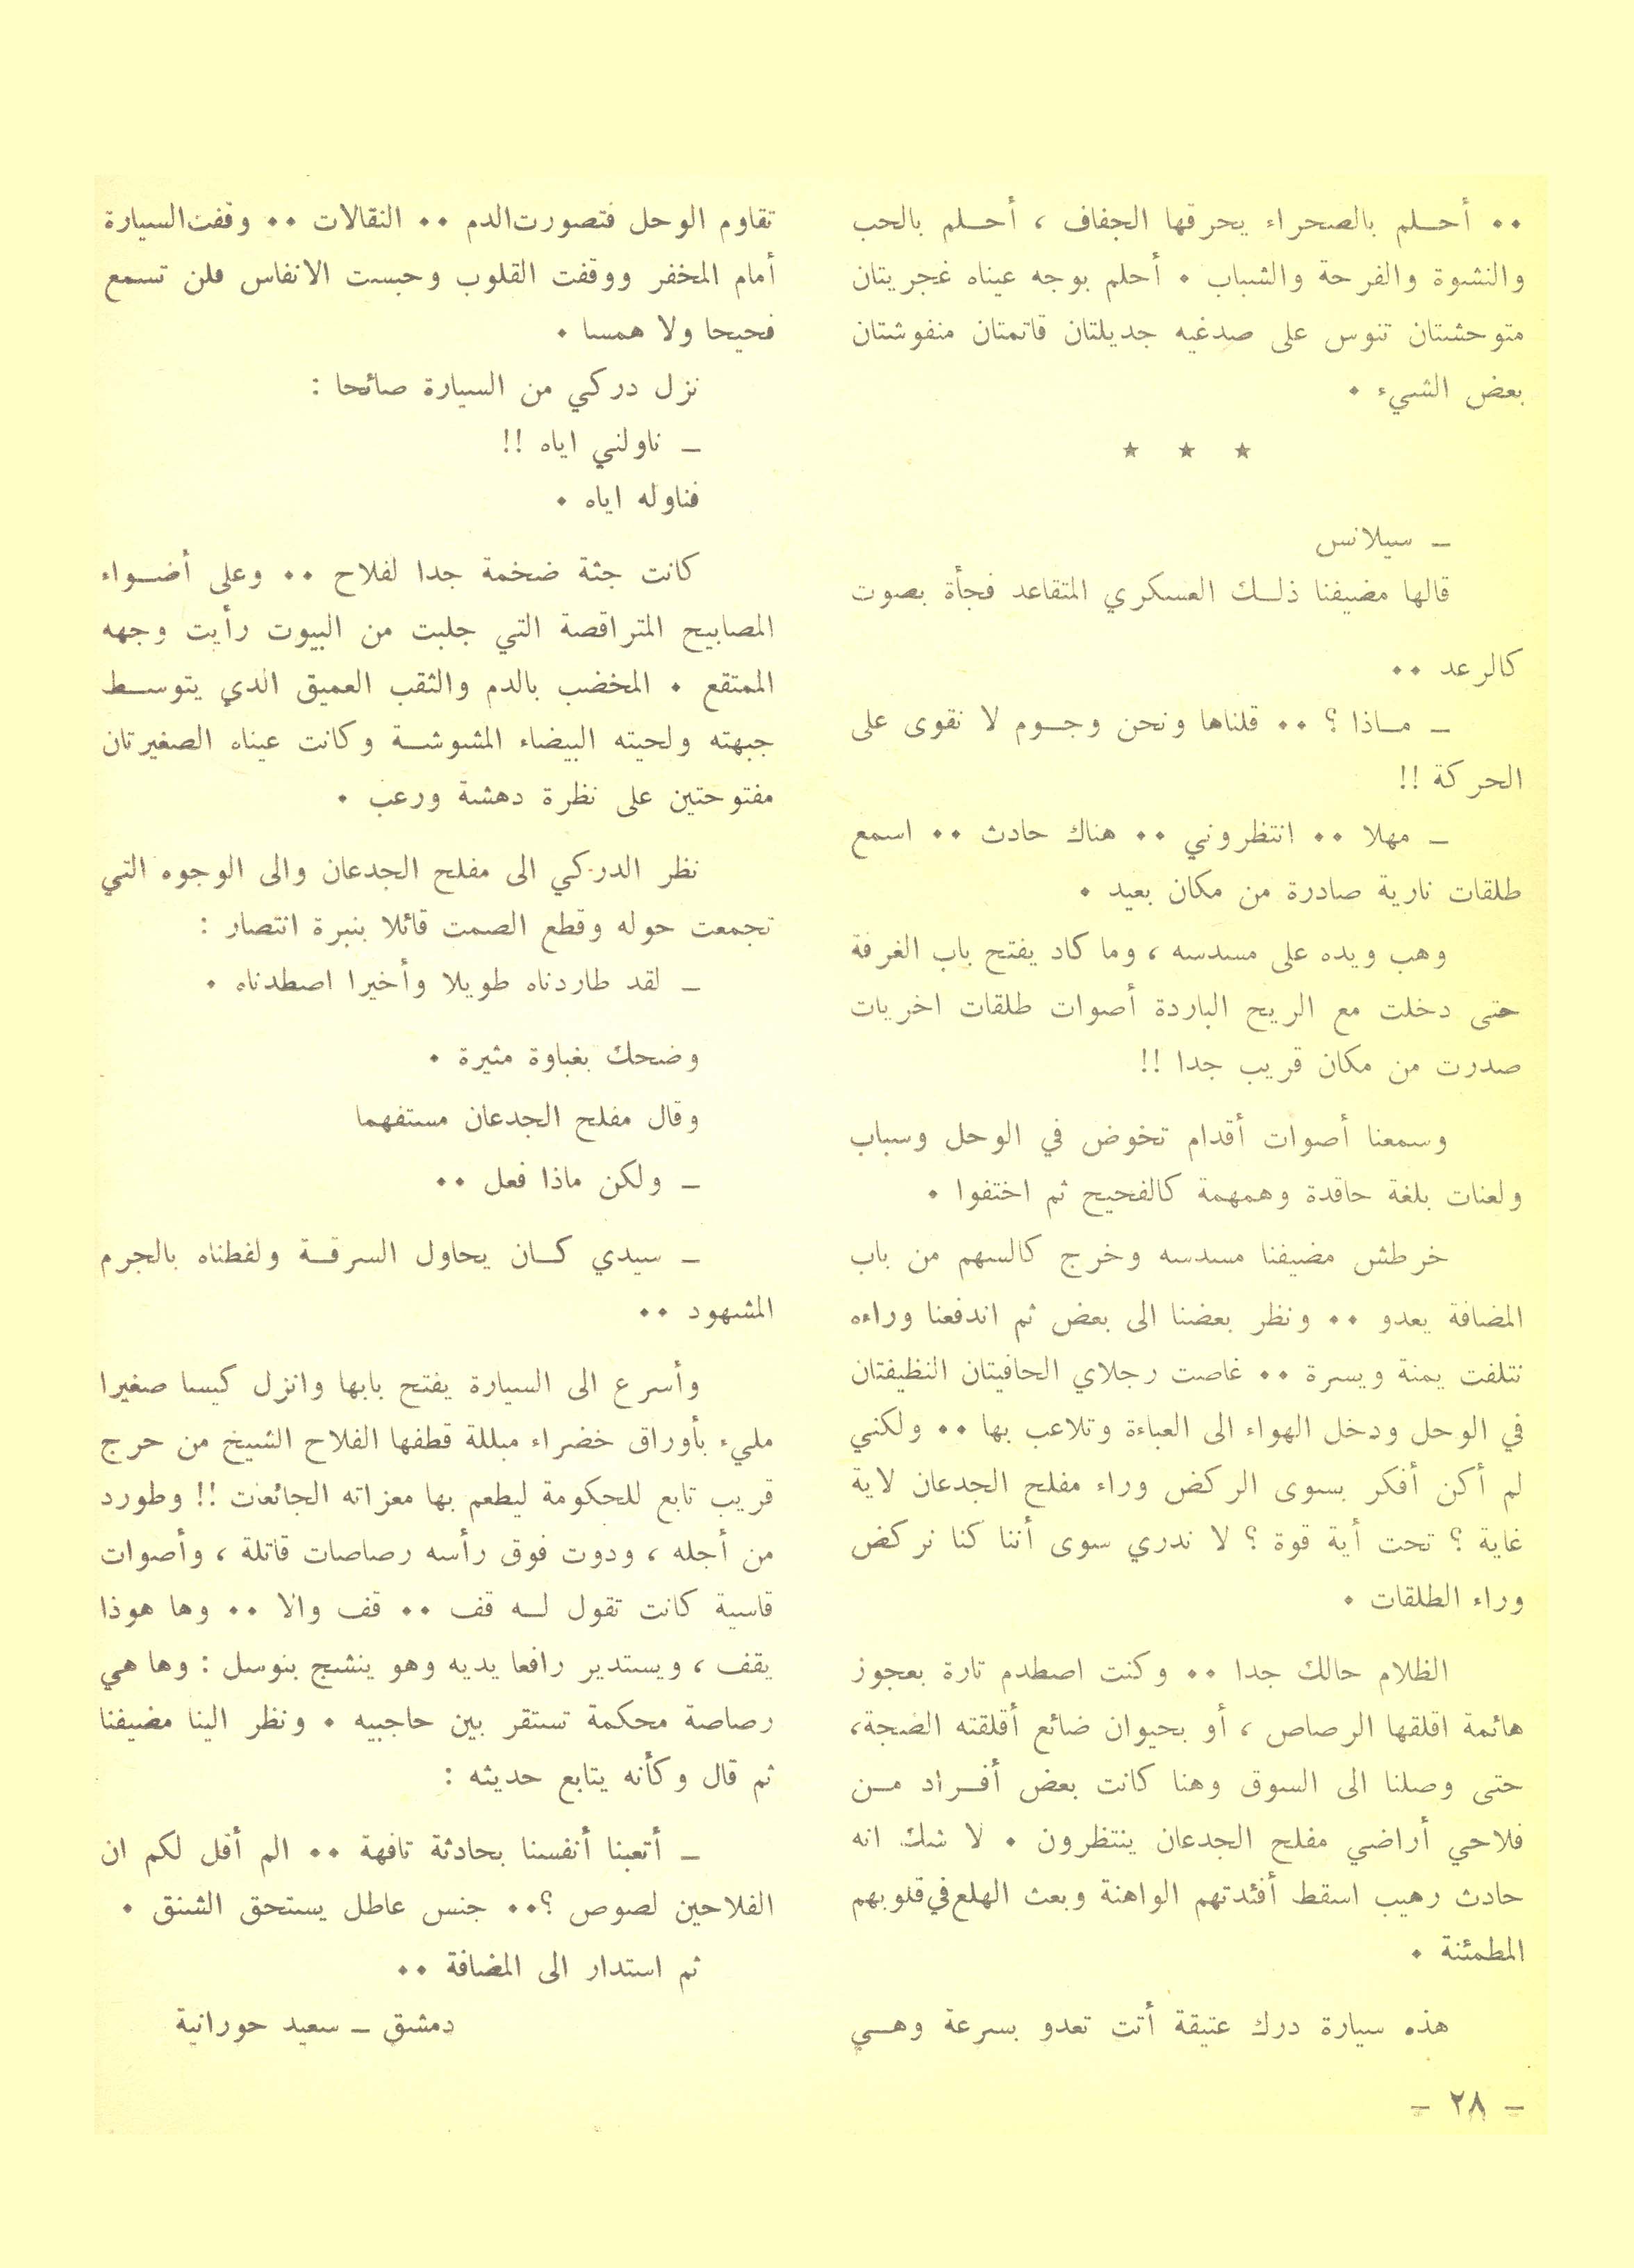 .. أحلم بالصحراء يحرقها الجفاف ، أحلم بالحب
والنشوة والفرحة والشباب . أحلم بوجه عيناه غجريتان
متوحشتان تنوس على صدغيه جديلتان قاتمتان منفوشتان
بعض الشيء .
★ ★ ★
ــ سيلانس
قالها مضيفنا ذلك العسكري المتقاعد فجأة بصوت
كالرعد ..
ــ ماذا ؟ .. قلناها ونحن وجوم لا نقوى على
الحركة !!
ــ مهلا .. انتظروني .. هناك حادث .. اسمع
طلقات نارية صادرة من مكان بعيد .
وهب ويده على مسدسه ، وما كاد يفتح باب الغرفة
حتى دخلت مع الريح الباردة أصوات طلقات اخريات
صدرت من مكان قريب جدا !!
وسمعنا أصوات أقدام تخوض في الوحل وسباب
ولعنات بلغة حاقدة وهمهمة كالفحيح ثم اختفوا .
خرطش مضيفنا مسدسه وخرج كالسهم من باب
المضافة يعدو .. ونظر بعضنا الى بعض ثم اندفعنا وراءه
نتلفت يمنة ويسرة .. غاصت رجلاي الحافيتان النظيفتان
في الوحل ودخل الهواء الى العباءة وتلاعب بها .. ولكني
لم أكن أفكر بسوى الركض وراء مفلح الجدعان لاية
غاية ؟ تحت أية قوة ؟ لا ندري سوى أننا كنا نركض
وراء الطلقات .
الظلام حالك جدا .. وكنت اصطدم تارة بعجوز
هائمة اقلقها الرصاص ، أو بحيوان ضائع أقلقته الضجة،
حتى وصلنا الى السوق وهنا كانت بعض أفراد من
فلاحي أراضي مفلح الجدعان ينتظرون . لا شك انه
حادث رهيب اسقط أفئدتهم الواهنة وبعث الهلع في قلوبهم
المطمئنة .
هذه سيارة درك عتيقة أتت تعدو بسرعة وهي
تقاوم الوحل فتصورت الدم .. النقالات .. وقفت السيارة
أمام المخفر ووقفت القلوب وحبست الانفاس فلن تسمع
فحيحا ولا همسا .
نزل دركي من السيارة صائحا :
ــ ناولني اياه !!
فناوله اياه .
كانت جثة ضخمة جدا لفلاح .. وعلى أضواء
المصابيح المتراقصة التي جلبت من البيوت رأيت وجهه
الممتقع . المخضب بالدم والثقب العميق الذي يتوسط
جبهته ولحيته البيضاء المشوشة وكانت عيناه الصغيرتان
مفتوحتين على نظرة دهشة ورعب .
نظر الدركي الى مفلح الجدعان والى الوجوه التي
تجمعت حوله وقطع الصمت قائلا بنبرة انتصار :
ــ لقد طاردناه طويلا وأخيرا اصطدناه .
وضحك بغباوة مثيرة .
وقال مفلح الجدعان مستفهما
ــ ولكن ماذا فعل ..
ــ سيدي كان يحاول السرقة ولفطناه بالجرم
المشهود ..
وأسرع الى السيارة يفتح بابها وانزل كيسا صغيرا
مليء بأوراق خضراء مبللة قطفها الفلاح الشيخ من حرج
قريب تابع للحكومة ليطعم بها معزاته الجائعات !! وطورد
من أجله ، ودوت فوق رأسه رصاصات قاتلة ، وأصوات
قاسية كانت تقول له قف .. قف والا .. وها هوذا
يقف ، ويستدير رافعا يديه وهو ينشج بتوسل : وها هي
رصاصة محكمة تستقر بين حاجبيه . ونظر الينا مضيفنا
ثم قال وكأنه يتابع حديثه :
ــ أتعبنا أنفسنا بحادثة تافهة .. الم أقل لكم ان
الفلاحين لصوص ؟.. جنس عاطل يستحق الشنق .
ثم استدار الى المضافة ..
دمشق ــ سعيد حورانية
ــ ٢٨ ــ